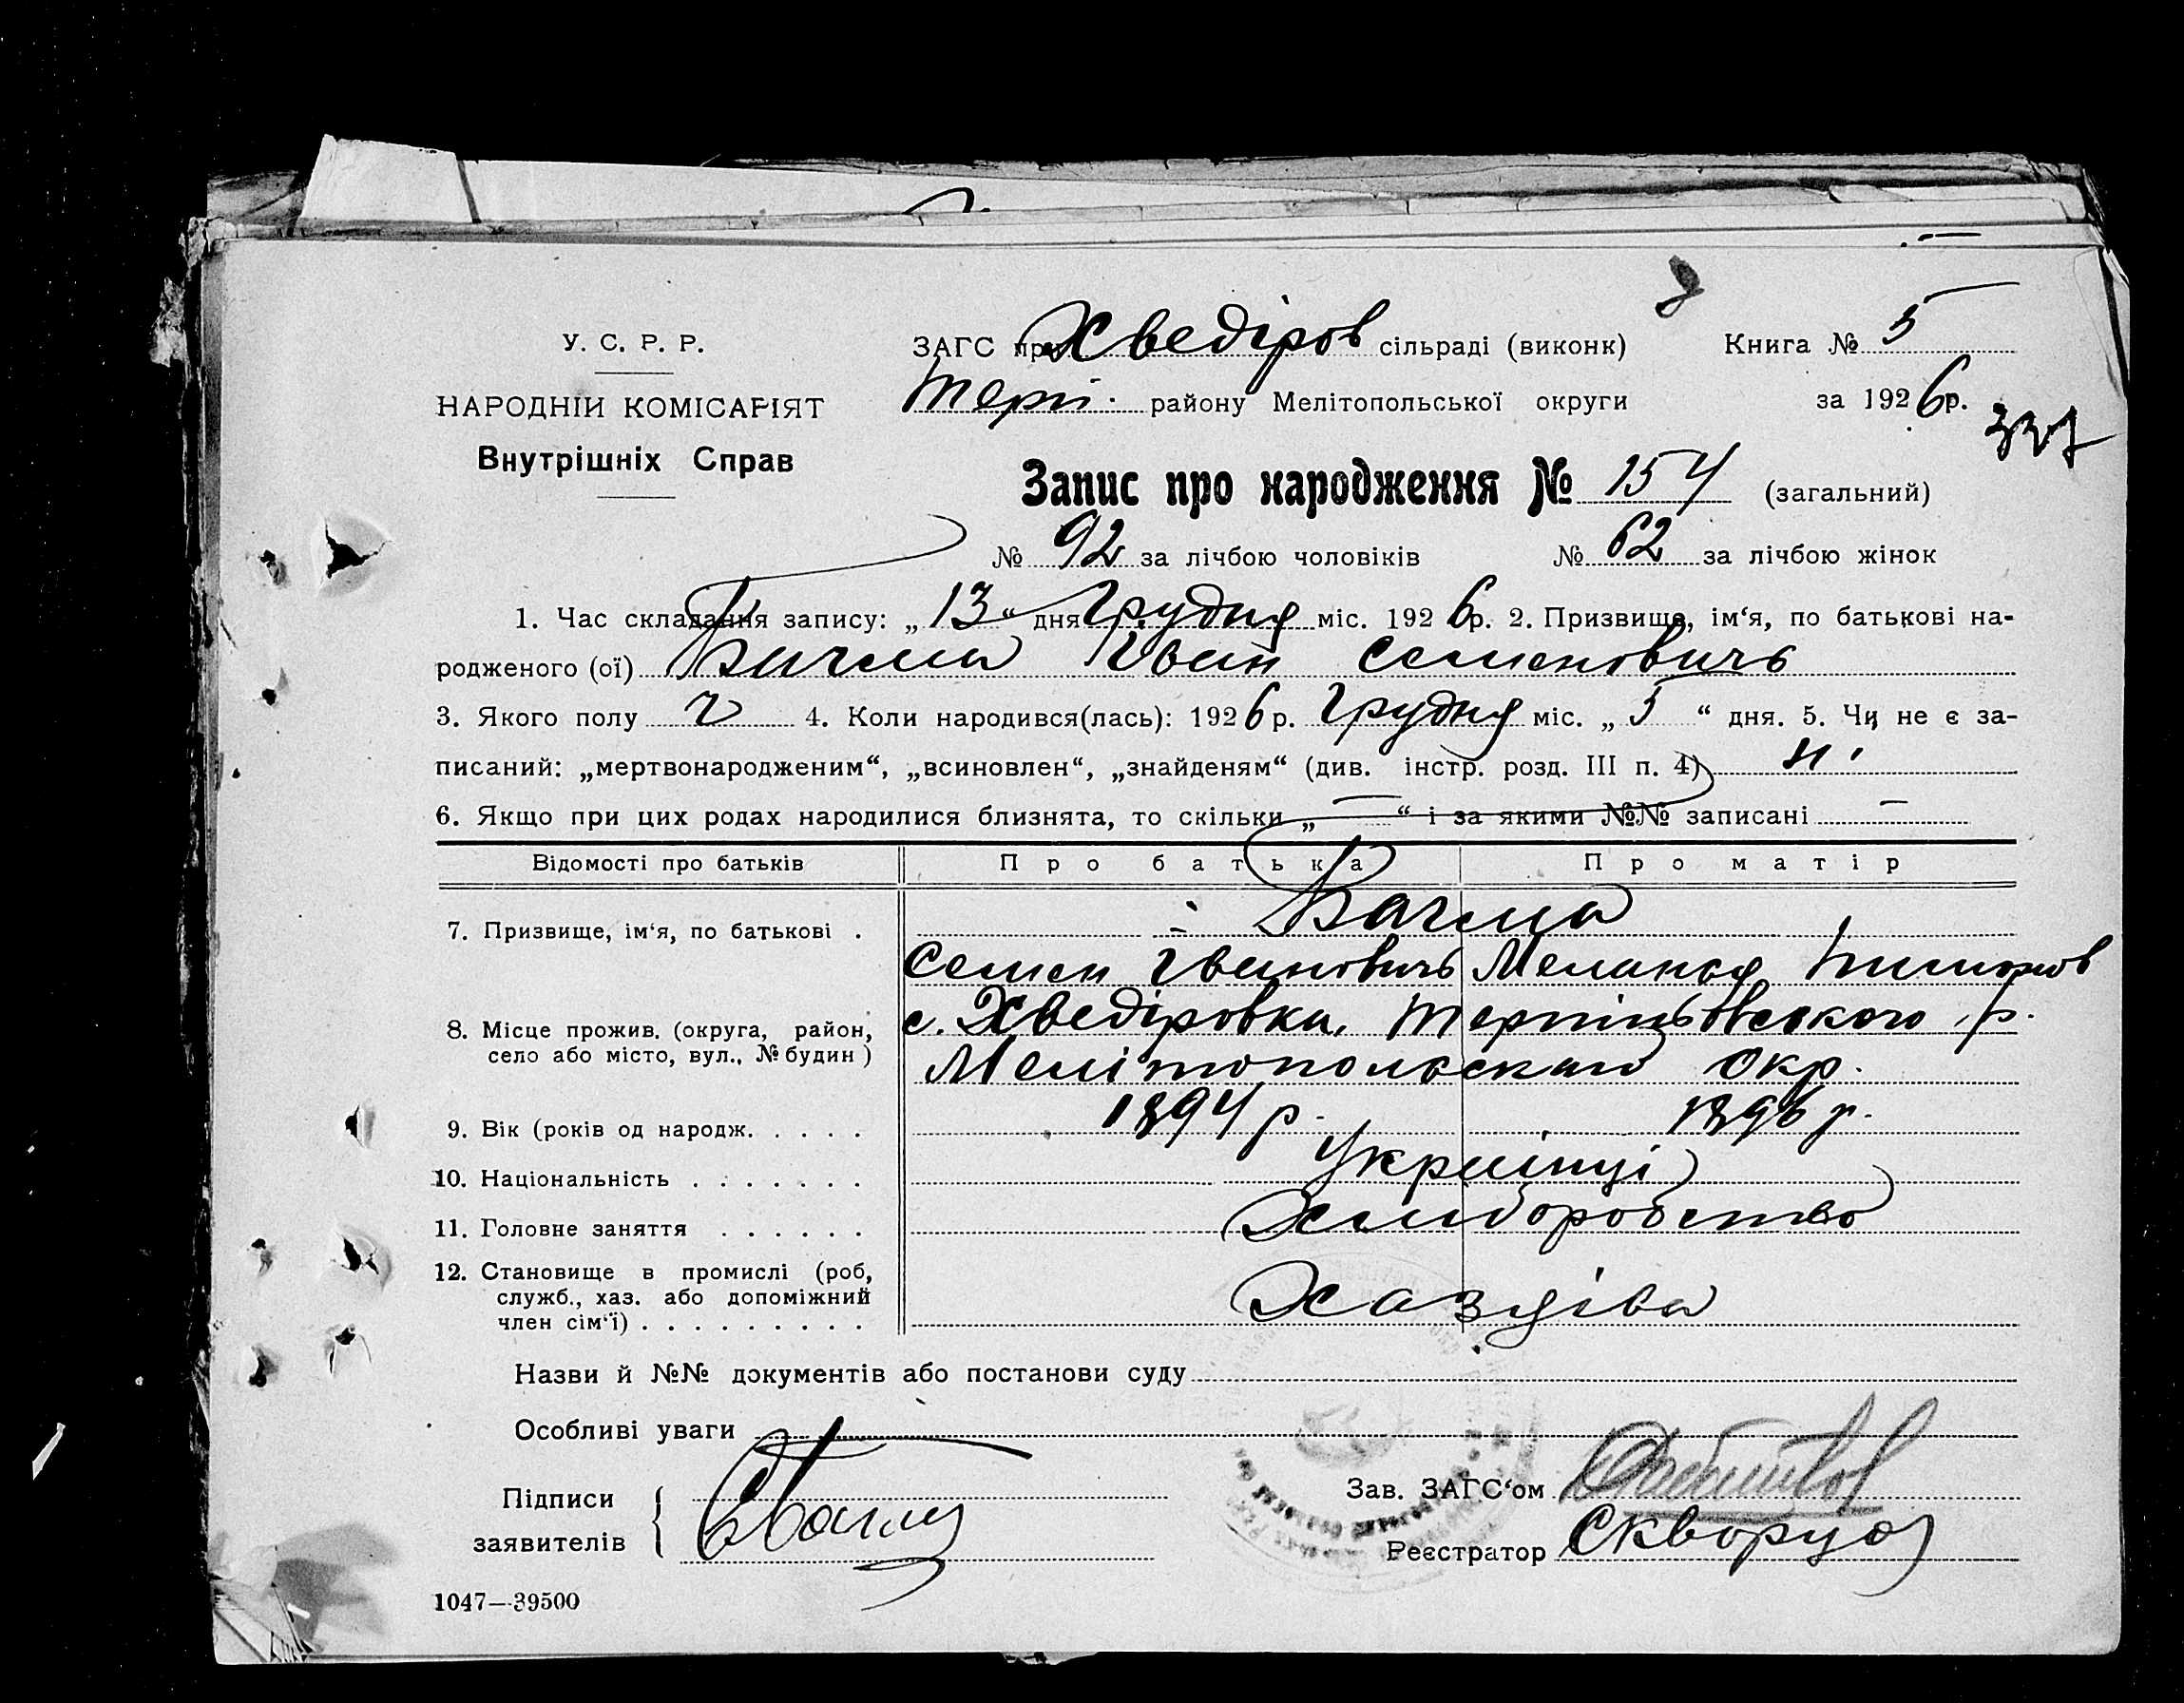 У. С. Р. Р.
НАРОДНІЙ КОМІСАРІЯТ
Внутрішніх Справ
ЗАГС при Хведіров сільраді (виконк) Книга № 5
Терп. району Мелітопольської округи за 1926 р.
337
Запис про народження № 154 (загальний)
№ 92 за лічбою чоловіків № 62 за лічбою жінок
1. Час складання запису: „13“ дня Грудня міс. 1926 р. 2. Призвище, ім‘я, по батькові на-
родженого (ої) Бачма Іван Семенович
3. Якого полу ч 4. Коли народився(лась): 1926 р. Грудня міс. „5“ дня. 5. Чи не є за-
писаний: „мертвонародженим“, „всиновлен“, „знайденям“ (див. інстр. розд. III п. 4) н.
6. Якщо при цих родах народилися близнята, то скільки „—“ і за якими №№ записані —
Відомості про батьків Про батька Про матір
7. Призвище, ім‘я, по батькові . Бачма
Семен Іванович Меланія
8. Місце прожив. (округа, район, село або місто, вул., № будин) с. Хведіровка, Терпіньовского р.
Мелітопольского Окр.
9. Вік (років од народж. . . . . 1894 р. 1896 р.
10. Національність . . . . . . . Українці
11. Головне заняття . . . . . . Хлиборобство
12. Становище в промислі (роб, служб., хаз. або допоміжний член сім‘ї) . . . . . . . . . Хазяіва
Назви й №№ документів або постанови суду
Особливі уваги —
Підписи
заявителів
Зав. ЗАГС‘ом
Реєстратор Скворцов
1047—39500